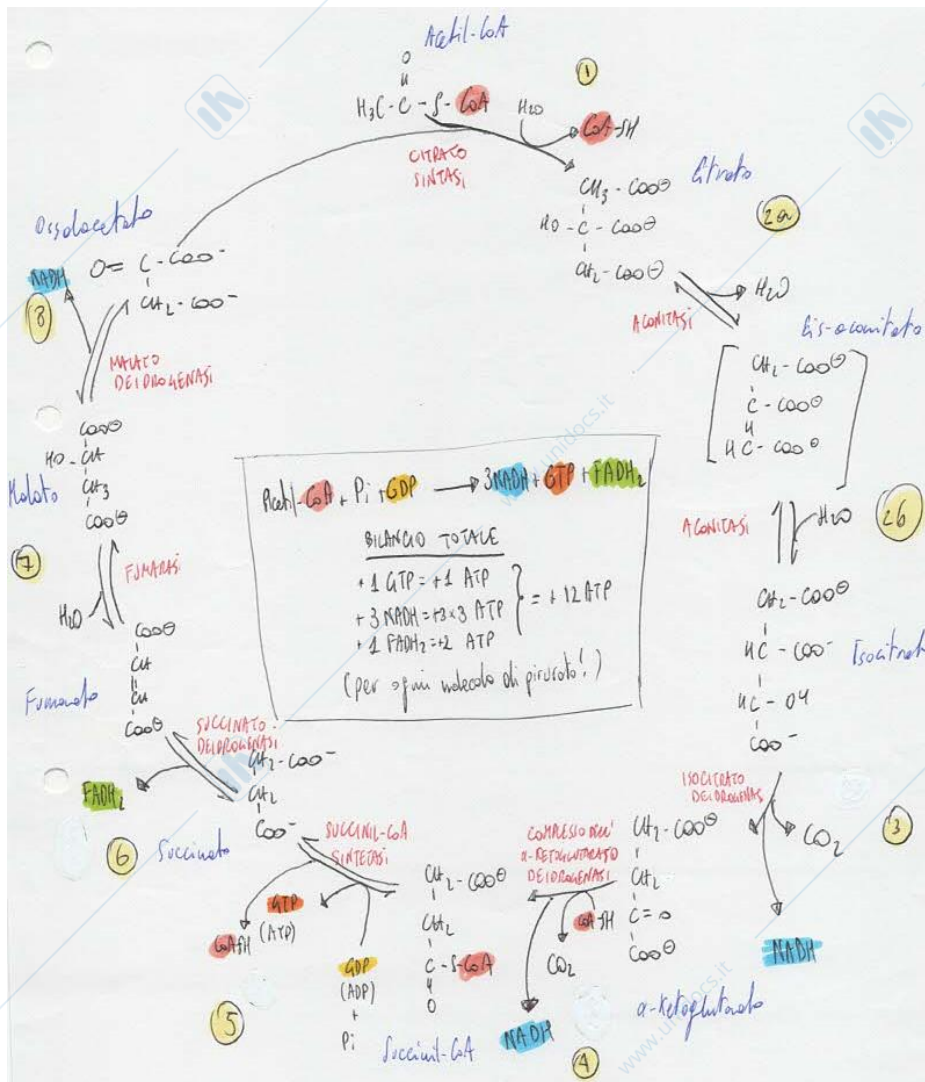 Acetil-CoA
O
H₃C-C-S-CoA
H₂O
CoA-SH
1
CITRATO
SINTASI
Citrato
CH₃-COO⊖
HO-C-COO⊖
CH₂-COO⊖
2a
H₂O
ACONITASI
Cis-aconitato
CH₂-COO⊖
C-COO⊖
HC-COO⊖
ACONITASI
H₂O
2b
CH₂-COO⊖
HC-COO⁻
HC-OH
COO⁻
Isocitrato
ISOCITRATO
DEIDROGENASI
CO₂
3
NADH
CH₂-COO⊖
CH₂
C=O
COO⊖
α-Ketoglutarato
COMPLESSO DELL'
α-KETOGLUTARATO
DEIDROGENASI
CoA-SH
CO₂
NADH
4
CH₂-COO⊖
CH₂
C-S-CoA
O
Succinil-CoA
SUCCINIL-CoA
SINTETASI
GTP
(ATP)
CoASH
GDP
(ADP)
+
Pi
5
CH₂-COO⁻
CH₂
COO⁻
Succinato
6
SUCCINATO-
DEIDROGENASI
FADH₂
Fumarato
COO⊖
CH
CH
COO⊖
FUMARASI
H₂O
7
Malato
COO⊖
HO-CH
CH₃
COO⊖
MALATO
DEIDROGENASI
NADH
8
Ossalacetato
O=C-COO⁻
CH₂-COO⁻
Acetil-CoA+Pi+GDP → 3NADH+GTP+FADH₂
BILANCIO TOTALE
+1 GTP=+1 ATP
+3 NADH=+3×3 ATP
+1 FADH₂=+2 ATP
= +12 ATP
(per ogni molecola di piruvato!)
www.unidocs.it
www.unidocs.it